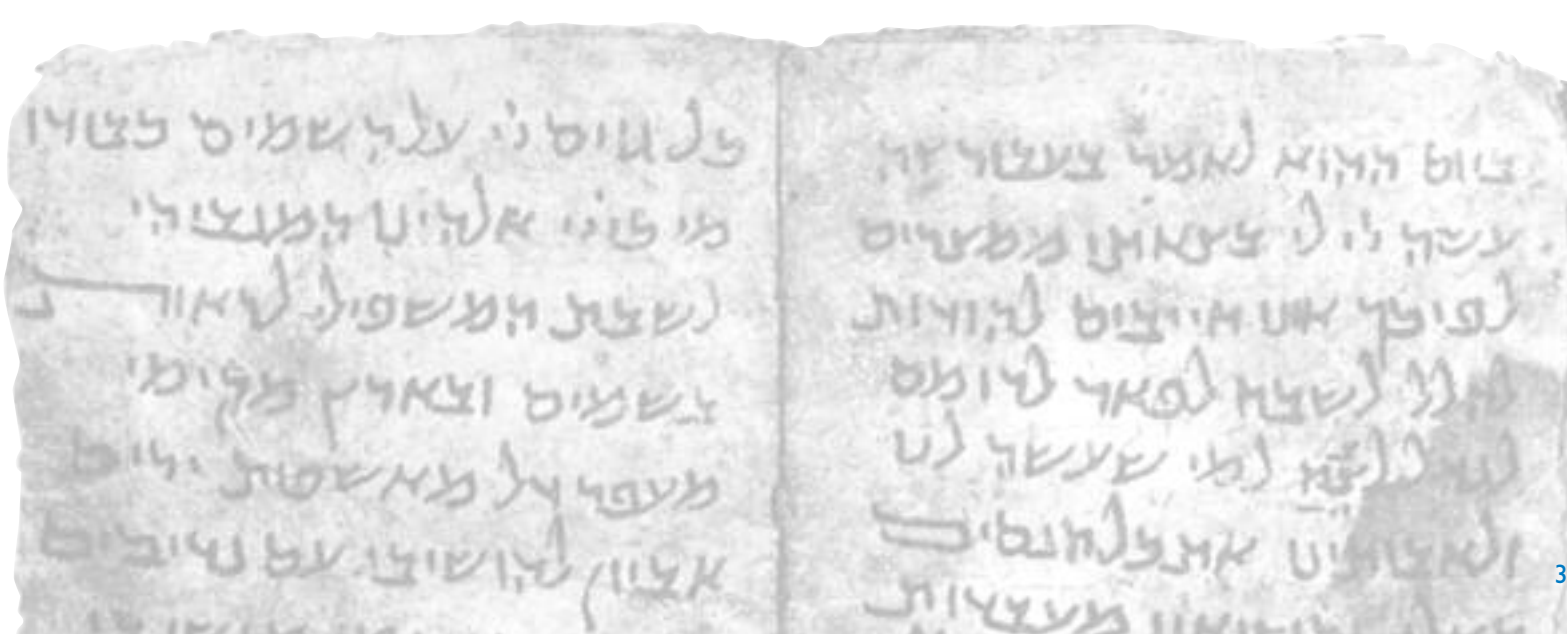 ביום ההוא לאמר בעבור זה
עשה יי לי בצאתי ממצרים
לפיכך אנו חייבים להודות
להלל לשבח לפאר לרומם
למי שעשה לנו
ולאבותינו את כל הנסים
מעבדות
כל גוים יי על השמים כבודו
מי כייי אלהינו המגביהי
לשבת המשפילי לראות
בשמים ובארץ מקימי
מעפר דל מאשפות ירים
אביון להושיבי עם נדיבים
3